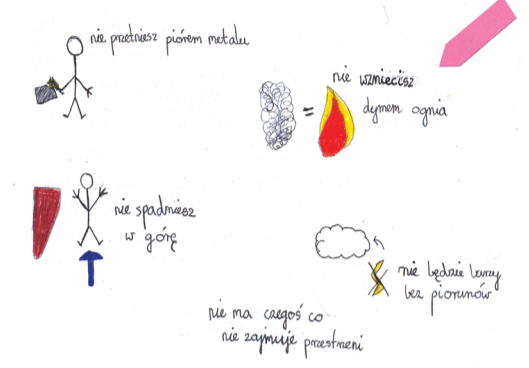 nie przetniesz piórem metalu
nie wzniecisz
dymem ognia
nie spadniesz
w górę
nie będzie burzy
bez piorunów
nie ma czegoś co
nie zajmuje przestrzeni